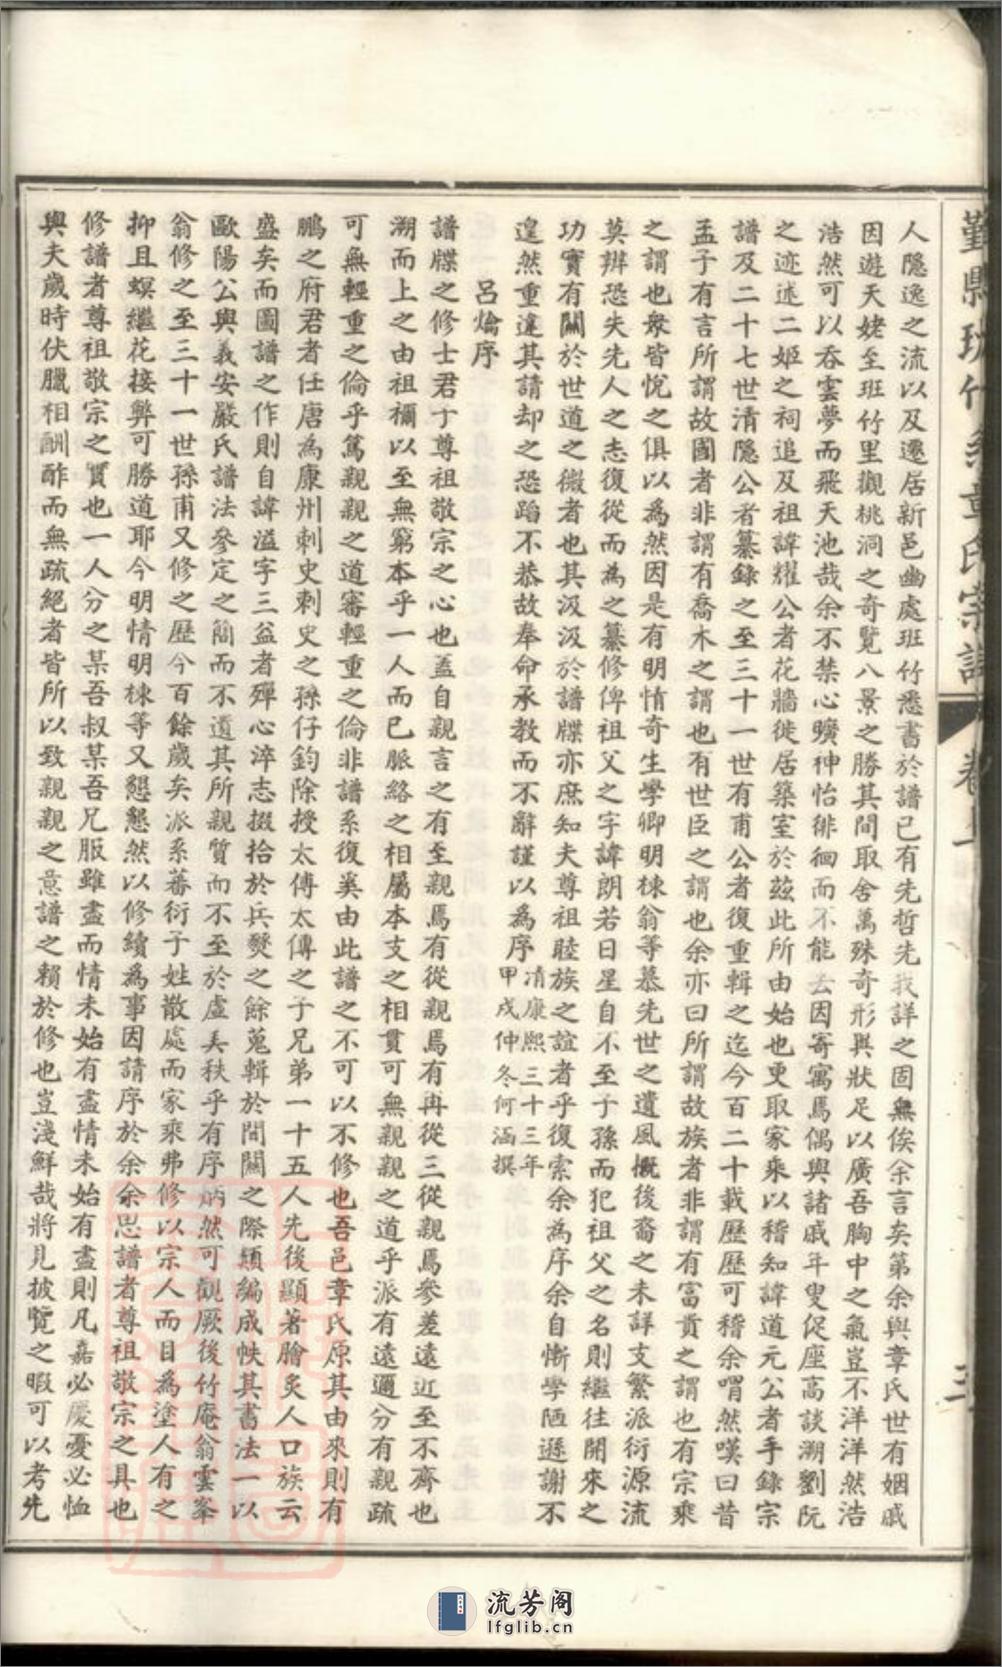 人隱逸之流以及遷居新邑幽處班竹悉書於譜已有先哲先我詳之固無俟余言矣第余與章氏世有姻戚
因遊天姥至班竹里觀桃洞之奇覽八景之勝其間取舍萬殊奇形異狀足以廣吾胸中之氣豈不洋洋然浩
浩然可以吞雲夢而飛天池哉余不禁心曠神怡徘徊而不能去因寄寓焉偶與諸戚年叟促座高談溯劉阮
之迹述二姬之祠追及祖諱耀公者花牆徙居築室於茲此所由始也更取家乘以稽知諱道元公者手錄宗
譜及二十七世清隱公者纂錄之至三十一世有甫公者復重輯之迄今百二十載歷歷可稽余喟然嘆曰昔
孟子有言所謂故國者非謂有喬木之謂也有世臣之謂也余亦曰所謂故族者非謂有富貴之謂也有宗乘
之謂也衆皆悅之俱以為然因是有明情奇生學卿明棟翁等慕先世之遺風慨後裔之未詳支繁派衍源流
莫辨恐失先人之志復從而為之纂修俾祖父之字諱朗若日星自不至子孫而犯祖父之名則繼往開來之
功實有關於世道之微者也其汲汲於譜牒亦庶知夫尊祖睦族之誼者乎復索余為序余自慚學陋遜謝不
遑然重違其請却之恐蹈不恭故奉命承教而不辭謹以為序清康熙三十三年甲戌仲冬何涵撰
呂爚序
譜牒之修士君子尊祖敬宗之心也蓋自親言之有至親焉有從親焉有再從三從親焉參差遠近至不齊也
溯而上之由祖禰以至無窮本乎一人而已脈絡之相屬本支之相貫可無親親之道乎派有遠邇分有親疏
可無輕重之倫乎篤親親之道審輕重之倫非譜系復奚由此譜之不可以不修也吾邑章氏原其由來則有
鵬之府君者仕唐為康州刺史刺史之孫仔鈞除授太傅太傅之子兄弟一十五人先後顯著膾炙人口族云
盛矣而圖譜之作則自諱溢字三益者殫心淬志掇拾於兵燹之餘蒐輯於間關之際類編成帙其書法一以
歐陽公與義安嚴氏譜法參定之簡而不遺其所親質而不至於虛美秩乎有序炳然可觀厥後竹庵翁雲峯
翁修之至三十一世孫甫又修之歷今百餘歲矣派系蕃衍子姓散處而家乘弗修以宗人而目為塗人有之
抑且螟繼花接弊可勝道耶今明情明棟等又懇懇然以修續為事因請序於余余思譜者尊祖敬宗之具也
修譜者尊祖敬宗之實也一人分之某吾叔某吾兄服雖盡而情未始有盡情未始有盡則凡嘉必慶憂必恤
與夫歲時伏臘相酬酢而無疏絕者皆所以致親親之意譜之賴於修也豈淺鮮哉將見披覽之暇可以考先
流芳阁
lfglib.cn